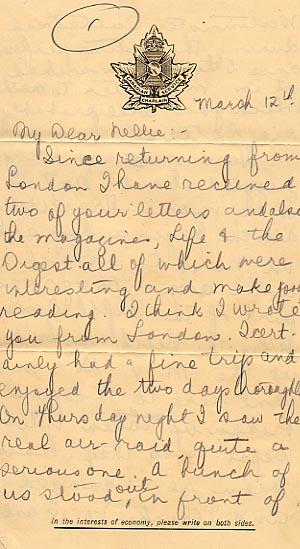 1
CHAPLAIN
March 12th
My Dear Nellie:-
Since returning from
London I have received
two of your letters and also
the magazines, Life & the
Digest all of which were
interesting and make good
reading. I think I wrote
you from London. I cert-
ainly had a fine trip and
enjoyed the two days thoroughly
On Thursday night I saw the
real air-raid, quite a
serious one. A bunch of
us stood out in front of
In the interests of economy, please write on both sides.